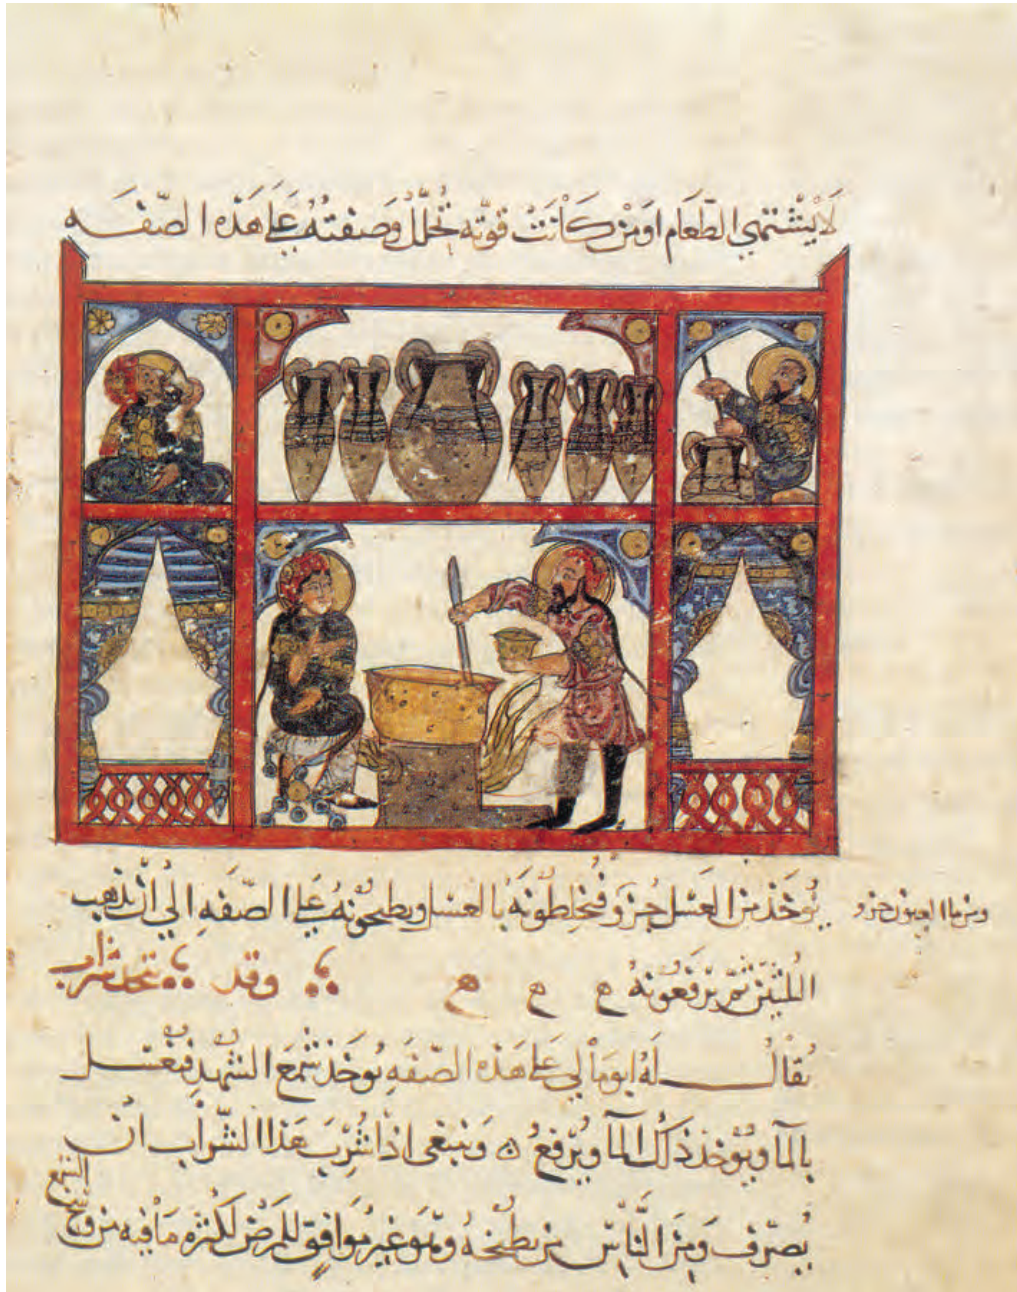 لا يشتهي الطعام او من كانت قوته تحلل وصفته على هذه الصفه
يوخذ من العسل جزو فيخلطونه بالعسل ويطبخونه على الصفه الي ان يذهب
ومن ما العيون جزو
الثلثين ثم يرفعونه ح ح ح وقد يتخذ شراب
يقال له ابومالي على هذه الصفه يوخذ شمع الشهد فيغسل
بالما ويوخذ ذلك الما ويرفع ٥ وينبغى اذا شرب هذا الشراب ان
يصرف ومن الناس من يطبخه وهو غير موافق للمرضى لكثره ما فيه من وسخ
الشمع